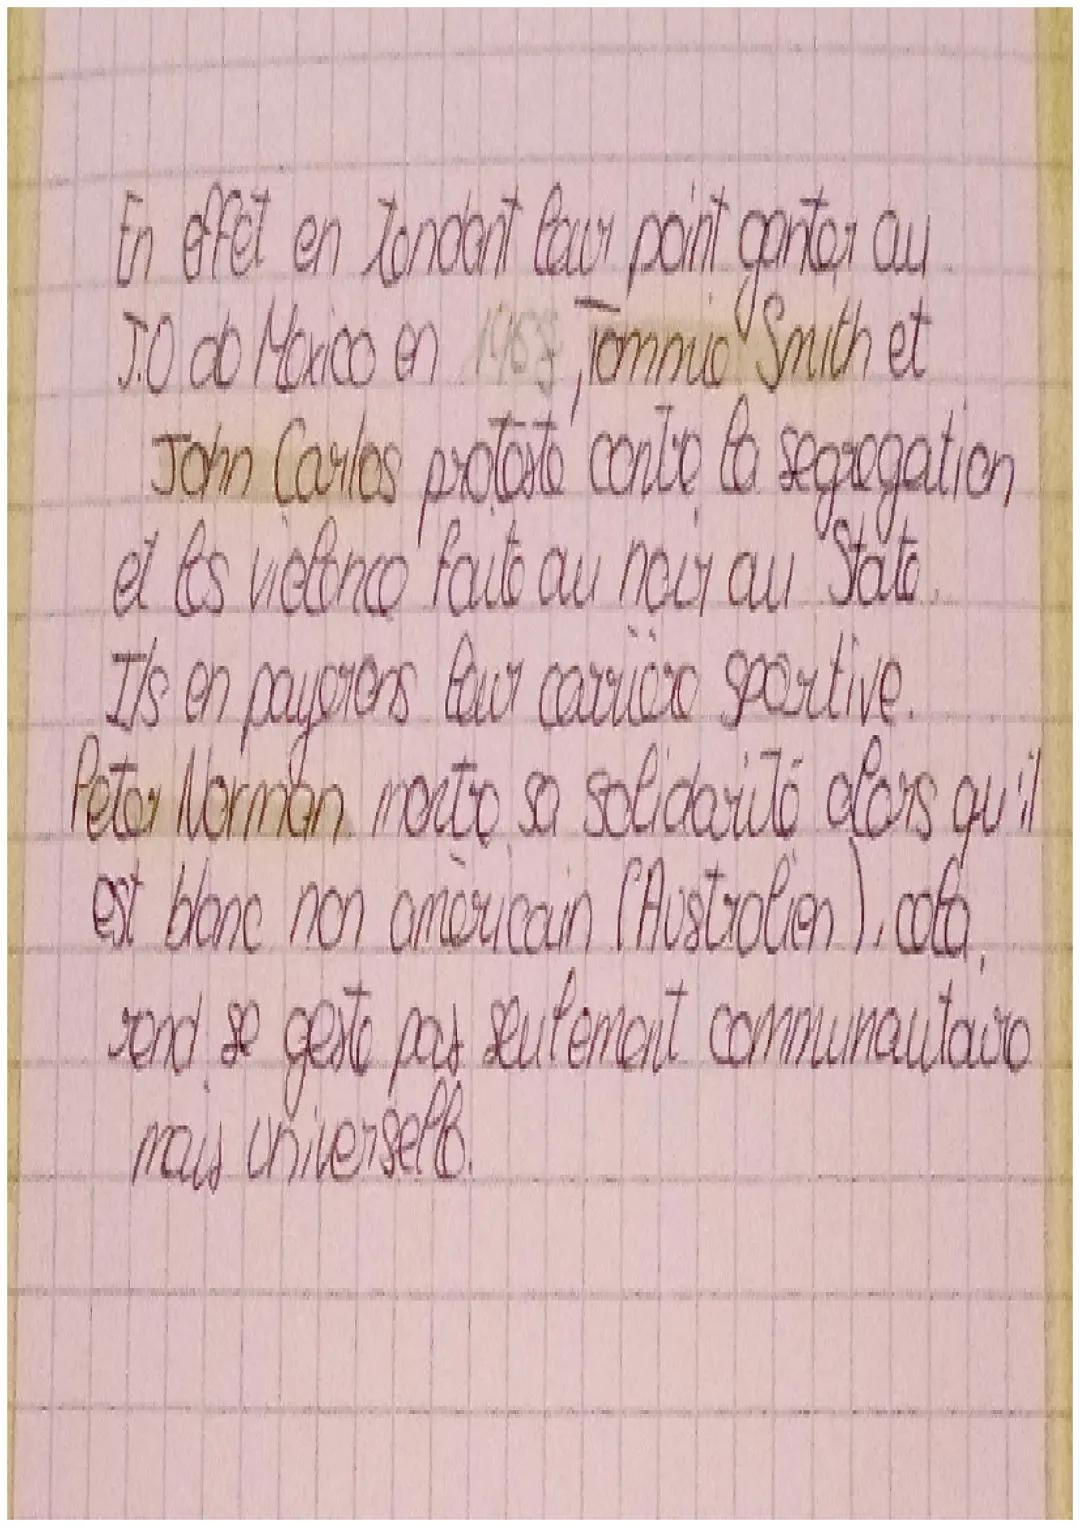 En effet en tendant leur point ganter au
J.O de Mexico en 1968, Tommie Smith et
John Carlos proteste contre la segregation
et les violence faite au noir au State.
Ils en payerons leur carrière sportive.
Peter Norman montre sa solidarité alors qu'il
est blanc non américain (Australien), cela
rend se geste pas seulement communautaire
mais universelle.